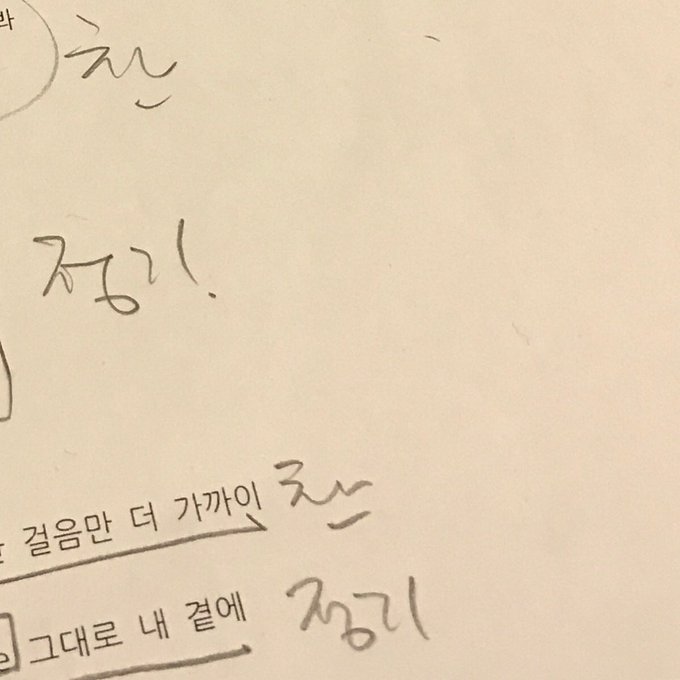 봐
찬
정기.
걸음만 더 가까이 찬
그대로 내 곁에 정기